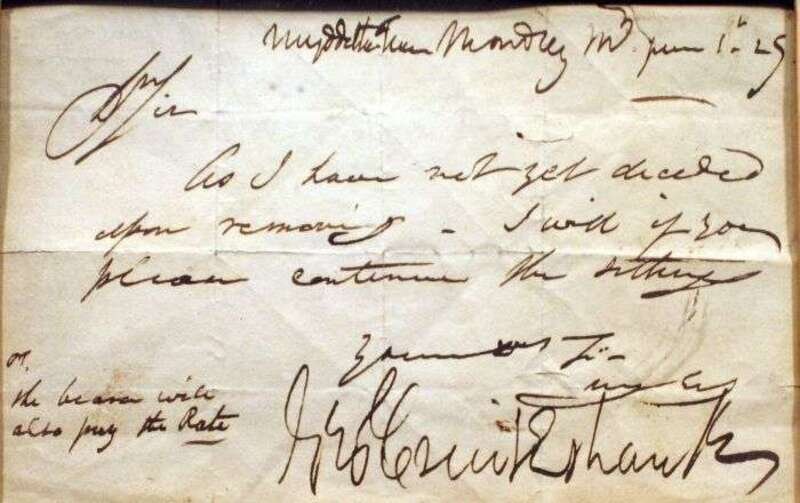 Myddelton Terr Monday Mg June 1st 29
Dr Sir
As I have not yet decided
upon removing - I will if you
please continue the sittings
Yours
Geo Cruikshank
the bearer will
also pay the Rate